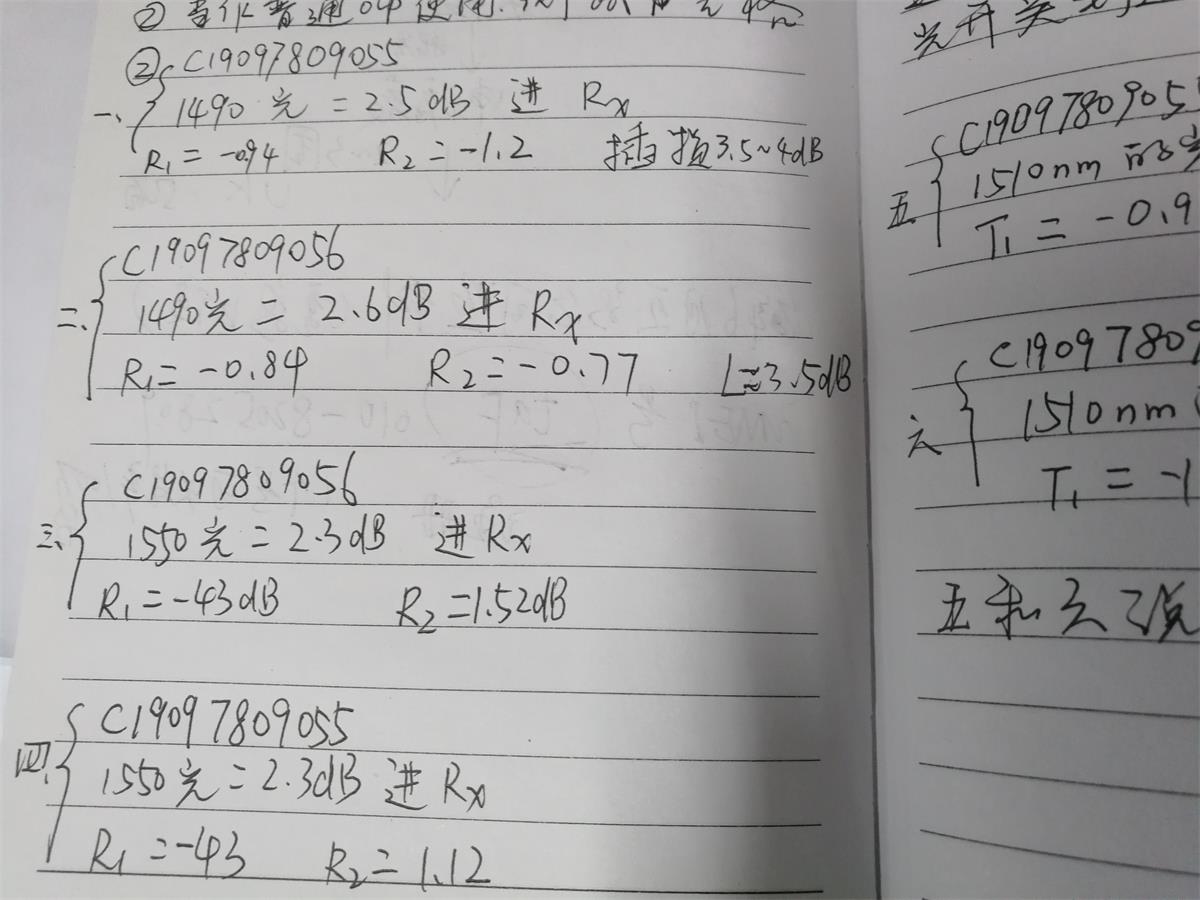 ② 普通OP使用.
② C19097809055
一、 1490 光 = 2.5 dB 进 Rx
R₁ = -0.94 R₂ = -1.2 插损3.5~4dB
C19097809056
二、 1490光 = 2.6dB 进 Rx
R₁ = -0.84 R₂ = -0.77 L≈3.5dB
C19097809056
三、 1550 光 = 2.3dB 进 Rx
R₁ = -43dB R₂ = 1.52dB
C19097809055
四、 1550 光 = 2.3dB 进 Rx
R₁ = -43 R₂ = 1.12
光开关
C1909780905
五、 1510nm 的光
T₁ = -0.9
C1909780
六、 1510nm
T₁ = -1
五和六